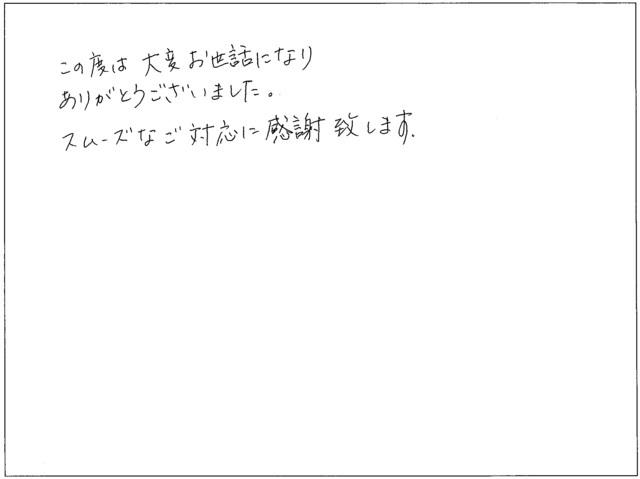 この度は 大変お世話になり
ありがとうございました。
スムーズなご対応に感謝致します.